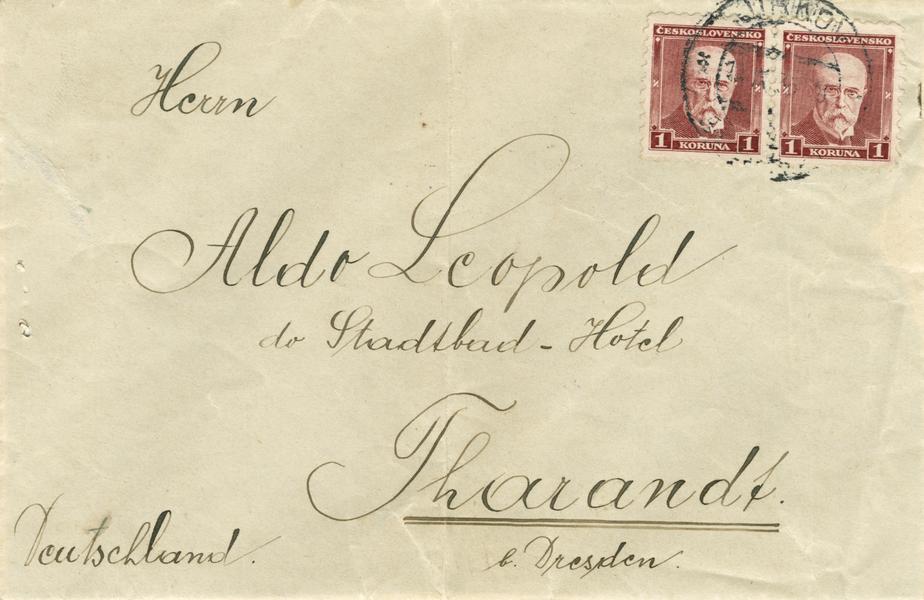 ČESKOSLOVENSKO ČESKOSLOVENSKO
1 KORUNA 1 1 KORUNA 1
Herrn
Aldo Leopold
do Stadtbad - Hotel
Tharandt.
b. Dresden.
Deutschland.